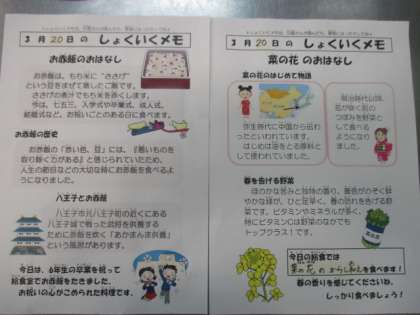 3月20日の しょくいくメモ
お赤飯のおはなし
お赤飯は、もち米に“ささげ”
という豆をまぜて蒸したご飯です。
ささげの煮汁でもち米を赤くします。
今は、七五三、入学式や卒業式、成人式、
結婚式など、お祝いごとのある日に食べます。
お赤飯の歴史
お赤飯の「赤い色、豆」には、『悪いものを
取り除く力がある』と信じられていたため、
人生の節目などの大切な時にお赤飯を食べるよ
うになりました。
八王子とお赤飯
八王子市元八王子町の近くにある
八王子城で戦った武将を供養する
ために赤飯を炊く「あかまんま供養」
という風習があります。
今日は、6年生の卒業を祝って
給食室でお赤飯をたきました。
お祝いの心がこめられた料理です。
3月20日の しょくいくメモ
菜の花 のおはなし
菜の花のはじめて物語
弥生時代に中国から伝わ
ったといわれています。
はじめは油をとる原料と
して使われていました。
明治時代以降、
花が咲く前の
つぼみを野菜と
して食べる
ように
なりました。
春を告げる野菜
ほのかな苦みと独特の香り、黄色がのぞく鮮
やかな緑が、ひと足早く、春の訪れを告げる野
菜です。ビタミンやミネラルが多く、
特にビタミンCは野菜のなかでも
トップクラス！です。
今日の給食では
菜の花のからしあえを食べます！
春の香りを感じてくださいね。
しっかり食べましょう！